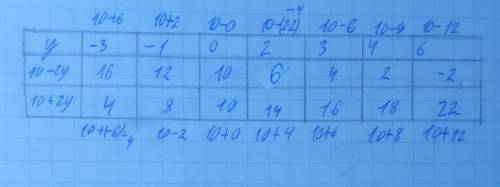 10+6 10+2 10-0 10-(22) -4 10-6 10-9 10-12
y -3 -1 0 2 3 4 6
10-2y 16 12 10 6 4 2 -2
10+2y 4 8 10 14 16 18 22
10-2 10+0 10+4 10+6 10+8 10+12